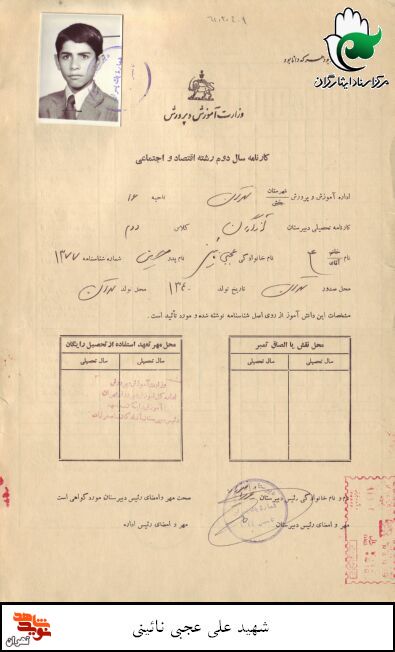 مرکز اسناد ایثارگران
۶۱،۲۰۴۰۹
توانا بود هر که دانا بود
وزارت آموزش و پرورش
کارنامه سال دوم رشته اقتصاد و اجتماعی
اداره آموزش و پرورش شهرستان بخش تهران ناحیه ۱۶
کارنامه تحصیلی دبیرستان کلاس دوم
خانم آقای نام خانوادگی عجبی نائینی نام پدر حسین شماره شناسنامه ۱۳۷۷
محل صدور تهران تاریخ تولد ۱۳۴۰ محل تولد تهران
مشخصات این دانش آموز از روی اصل شناسنامه نوشته شده و مورد تأئید است.
محل نقش یا الصاق تمبر
سال تحصیلی سال تحصیلی
محل مهر تعهد استفاده از تحصیل رایگان
سال تحصیلی سال تحصیلی
وزارت آموزش و پرورش
نام و نام خانوادگی رئیس دبیرستان
صحت مهر و امضای رئیس دبیرستان مورد گواهی است
مهر و امضای رئیس دبیرستان
مهر و امضای رئیس اداره
شهید علی عجبی نائینی
نوید شاهد
تهران